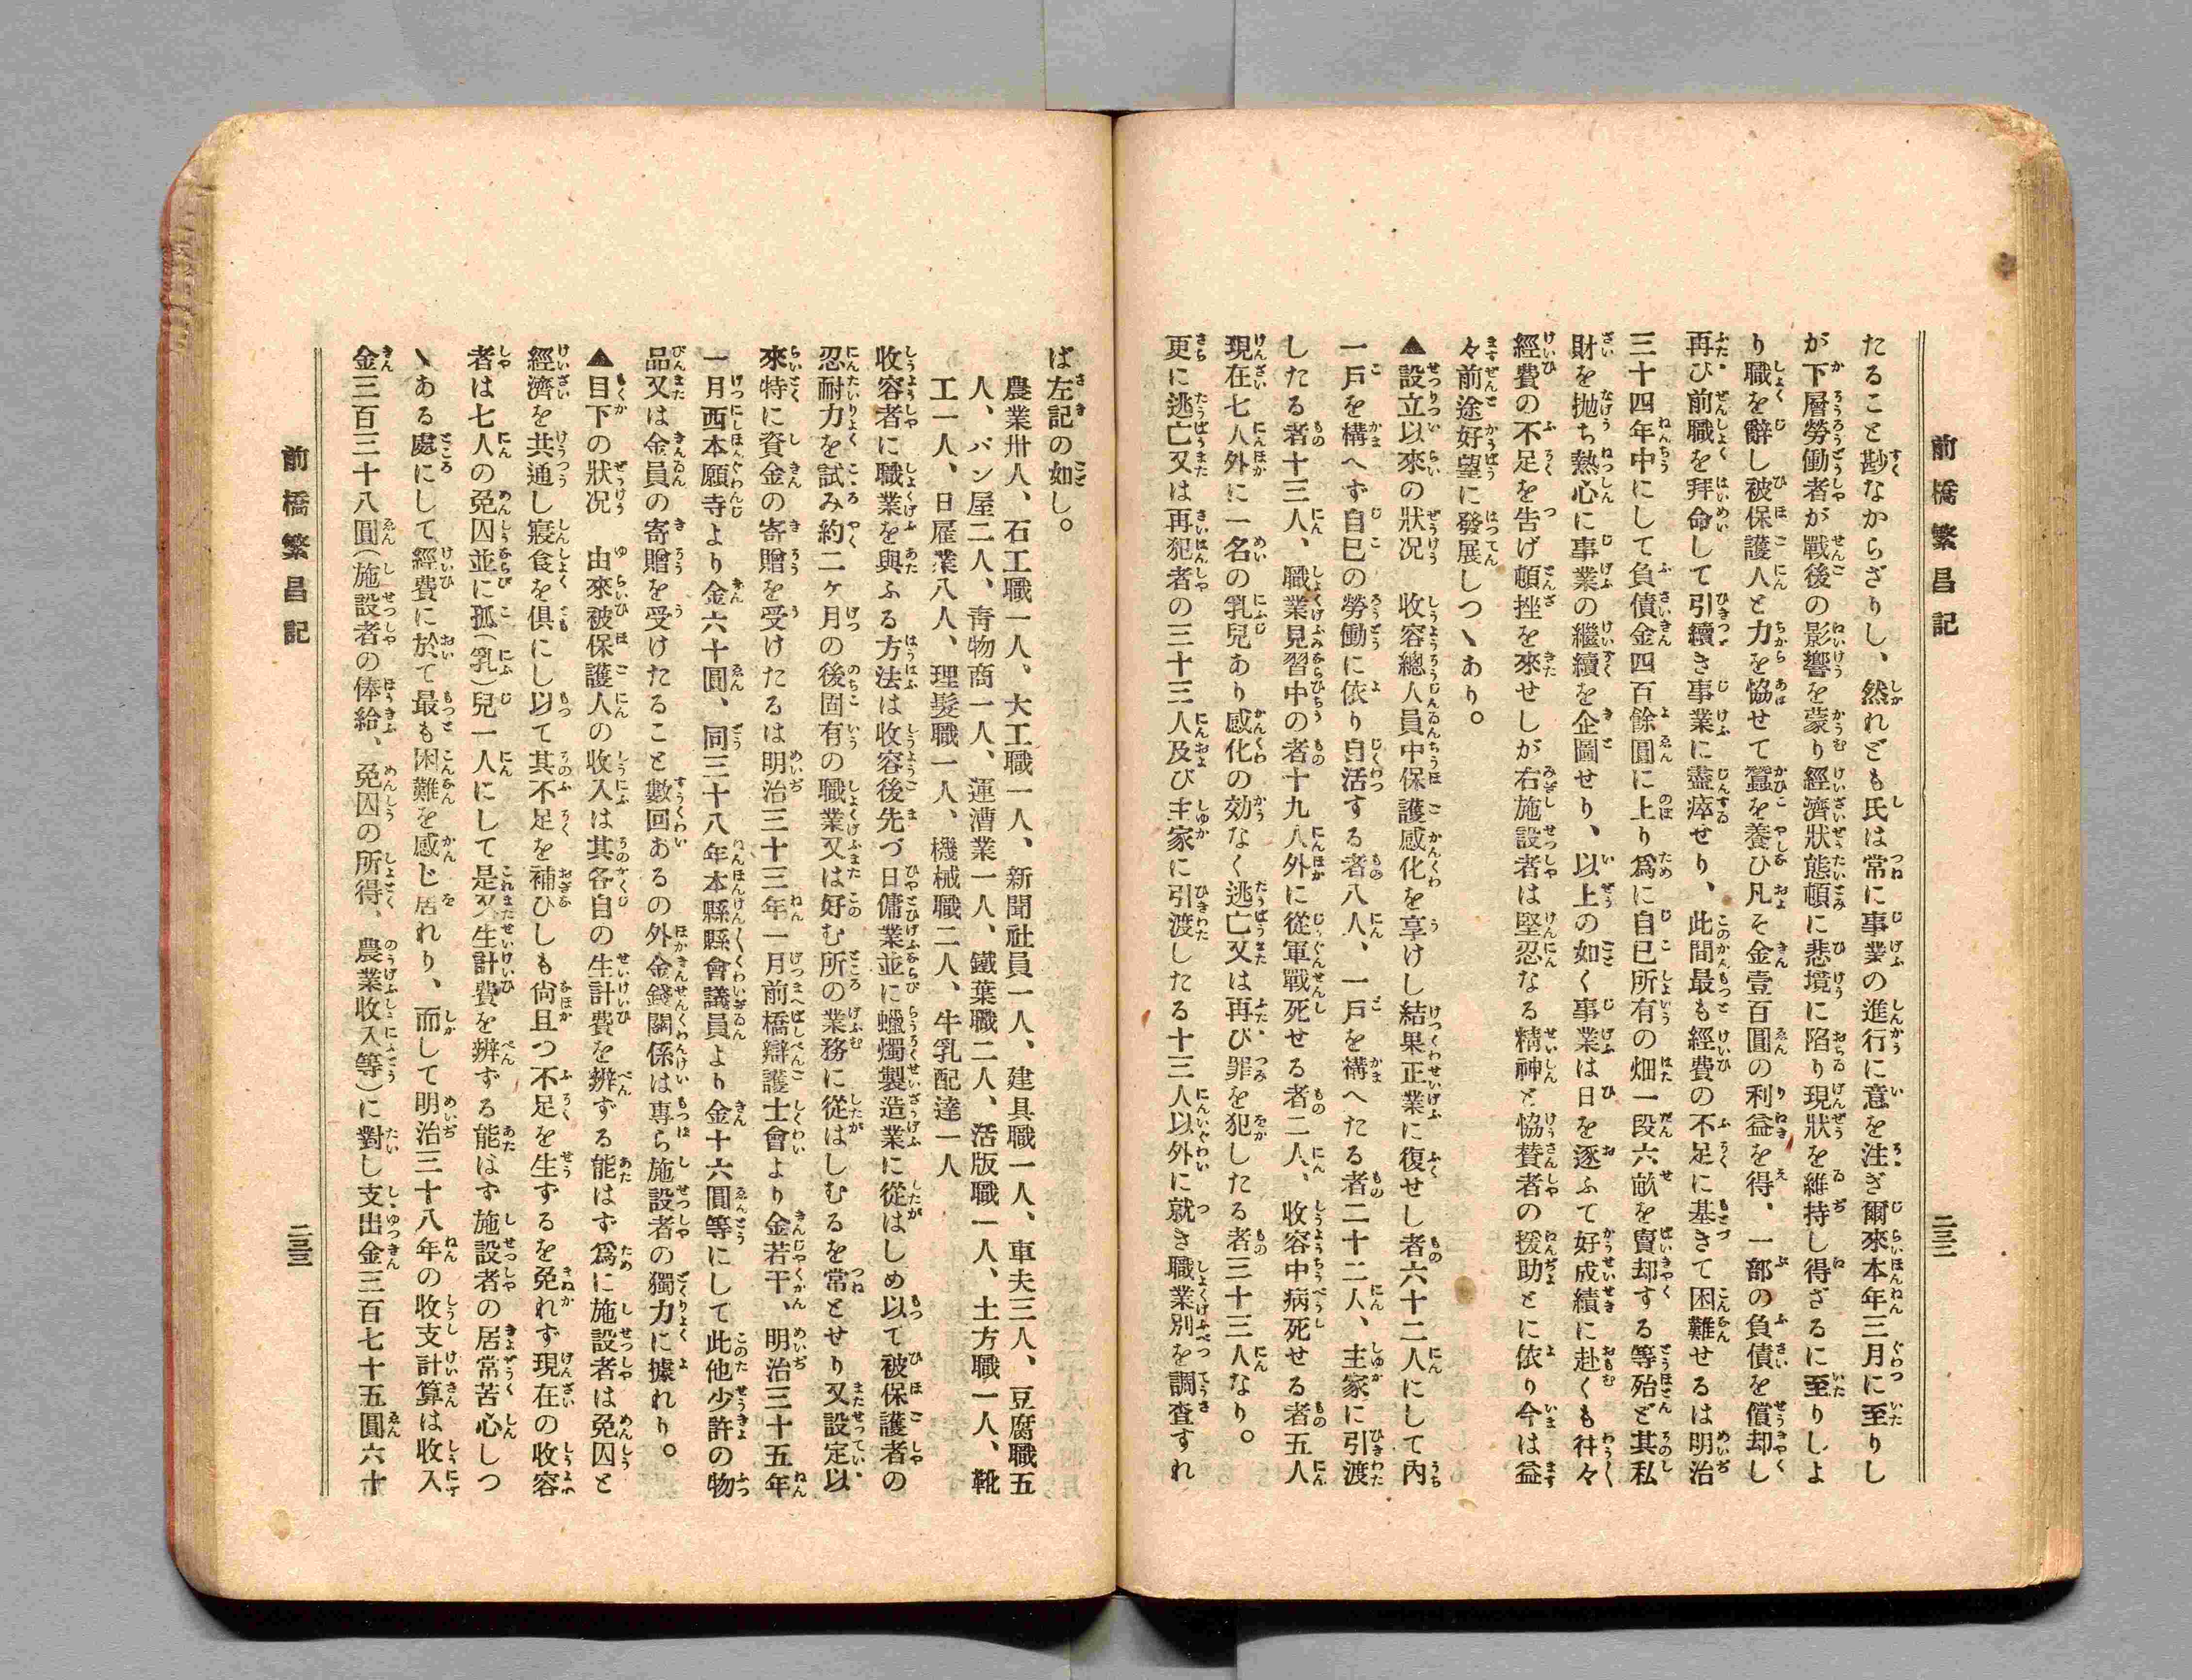 前橋繁昌記
二三二
たること尠なからざりし、然れども氏は常に事業の進行に意を注ぎ爾來本年三月に至りし
が下層勞働者が戰後の影響を蒙り經濟狀態頓に悲境に陷り現狀を維持し得ざるに至りしよ
り職を辭し被保護人と力を恊せて蠶を養ひ凡そ金壹百圓の利益を得、一部の負債を償却し
再び前職を拜命して引續き事業に盡瘁せり、此間最も經費の不足に基きて困難せるは明治
三十四年中にして負債金四百餘圓に上り爲に自己所有の畑一段六畝を賣却する等殆ど其私
財を抛ち熱心に事業の繼續を企圖せり、以上の如く事業は日を逐ふて好成績に赴くも徃々
經費の不足を告げ頓挫を來せしが右施設者は堅忍なる精神と恊賛者の援助とに依り今は益
々前途好望に發展しつヽあり。
▲設立以來の狀况　收容總人員中保護感化を享けし結果正業に復せし者六十二人にして內
一戶を構へず自己の勞働に依り自活する者八人、一戶を構へたる者二十二人、主家に引渡
したる者十三人、職業見習中の者十九人外に從軍戰死せる者二人、收容中病死せる者五人
現在七人外に一名の乳兒あり感化の効なく逃亡又は再び罪を犯したる者三十三人なり。
更に逃亡又は再犯者の三十三人及び主家に引渡したる十三人以外に就き職業別を調査すれ
ば左記の如し。
農業卅人、石工職一人、大工職一人、新聞社員一人、建具職一人、車夫三人、豆腐職五
人、パン屋二人、靑物商一人、運漕業一人、鐵葉職二人、活版職一人、土方職一人、靴
工一人、日雇業八人、理髮職一人、機械職二人、牛乳配達一人
收容者に職業を與ふる方法は收容後先づ日傭業並に蠟燭製造業に從はしめ以て被保護者の
忍耐力を試み約二ヶ月の後固有の職業又は好む所の業務に從はしむるを常とせり又設定以
來特に資金の寄贈を受けたるは明治三十三年一月前橋辯護士會より金若干、明治三十五年
一月西本願寺より金六十圓、同三十八年本縣縣會議員より金十六圓等にして此他少許の物
品又は金員の寄贈を受けたること數回あるの外金錢關係は專ら施設者の獨力に據れり。
▲目下の狀况　由來被保護人の收入は其各自の生計費を辨ずる能はず爲に施設者は免囚と
經濟を共通し寢食を俱にし以て其不足を補ひしも尙且つ不足を生ずるを免れず現在の收容
者は七人の免囚並に孤(乳)兒一人にして是又生計費を辨ずる能はず施設者の居常苦心しつ
ヽある處にして經費に於て最も困難を感じ居れり、而して明治三十八年の收支計算は收入
金三百三十八圓(施設者の俸給、免囚の所得、農業收入等)に對し支出金三百七十五圓六十
前橋繁昌記
二三三